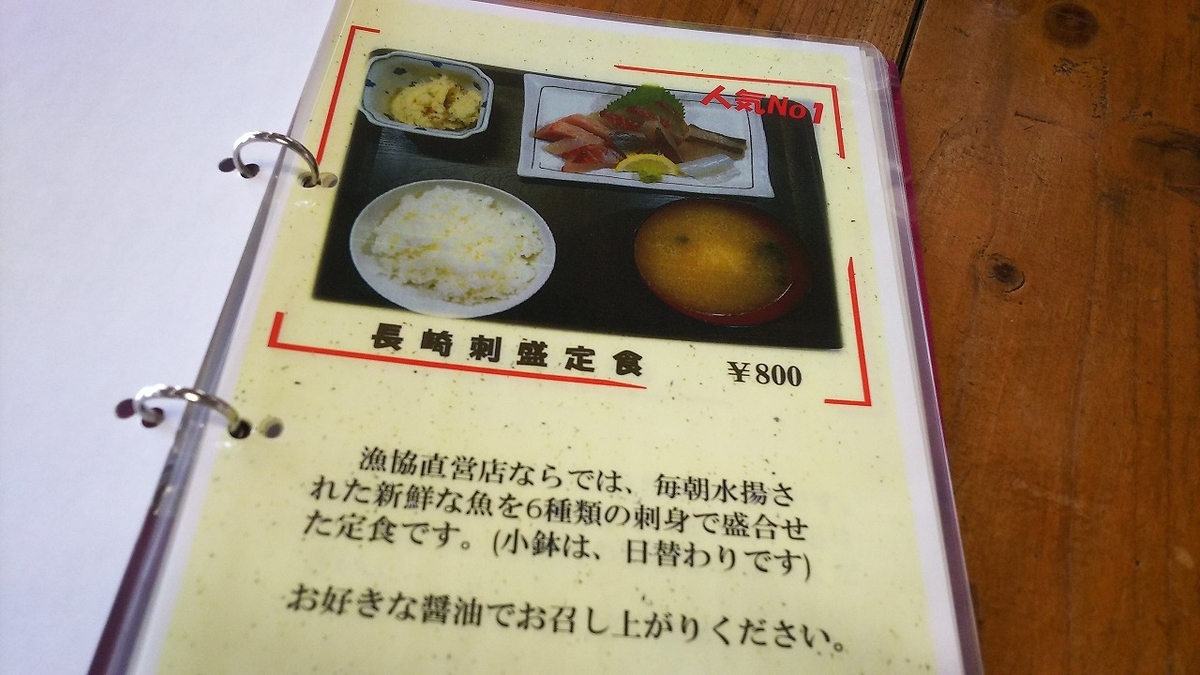 人気No1
長崎刺盛定食
￥800
漁協直営店ならでは、毎朝水揚さ
れた新鮮な魚を6種類の刺身で盛合せ
た定食です。(小鉢は、日替わりです)
お好きな醤油でお召し上がりください。